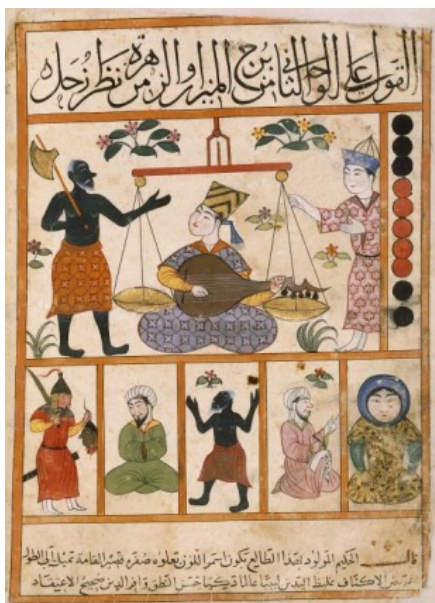 القول على الوجه الثاني من برج الميزان والزهرة من نظر زحل
قال الحكيم المولود لهذا الطالع يكون اسمر اللون تعلوه صفره قصير القامة تميل الى الطول
عريض الاكتاف غليظ البدن لبيبا عالما حسن النطق وافر الدين صحيح الاعتقاد